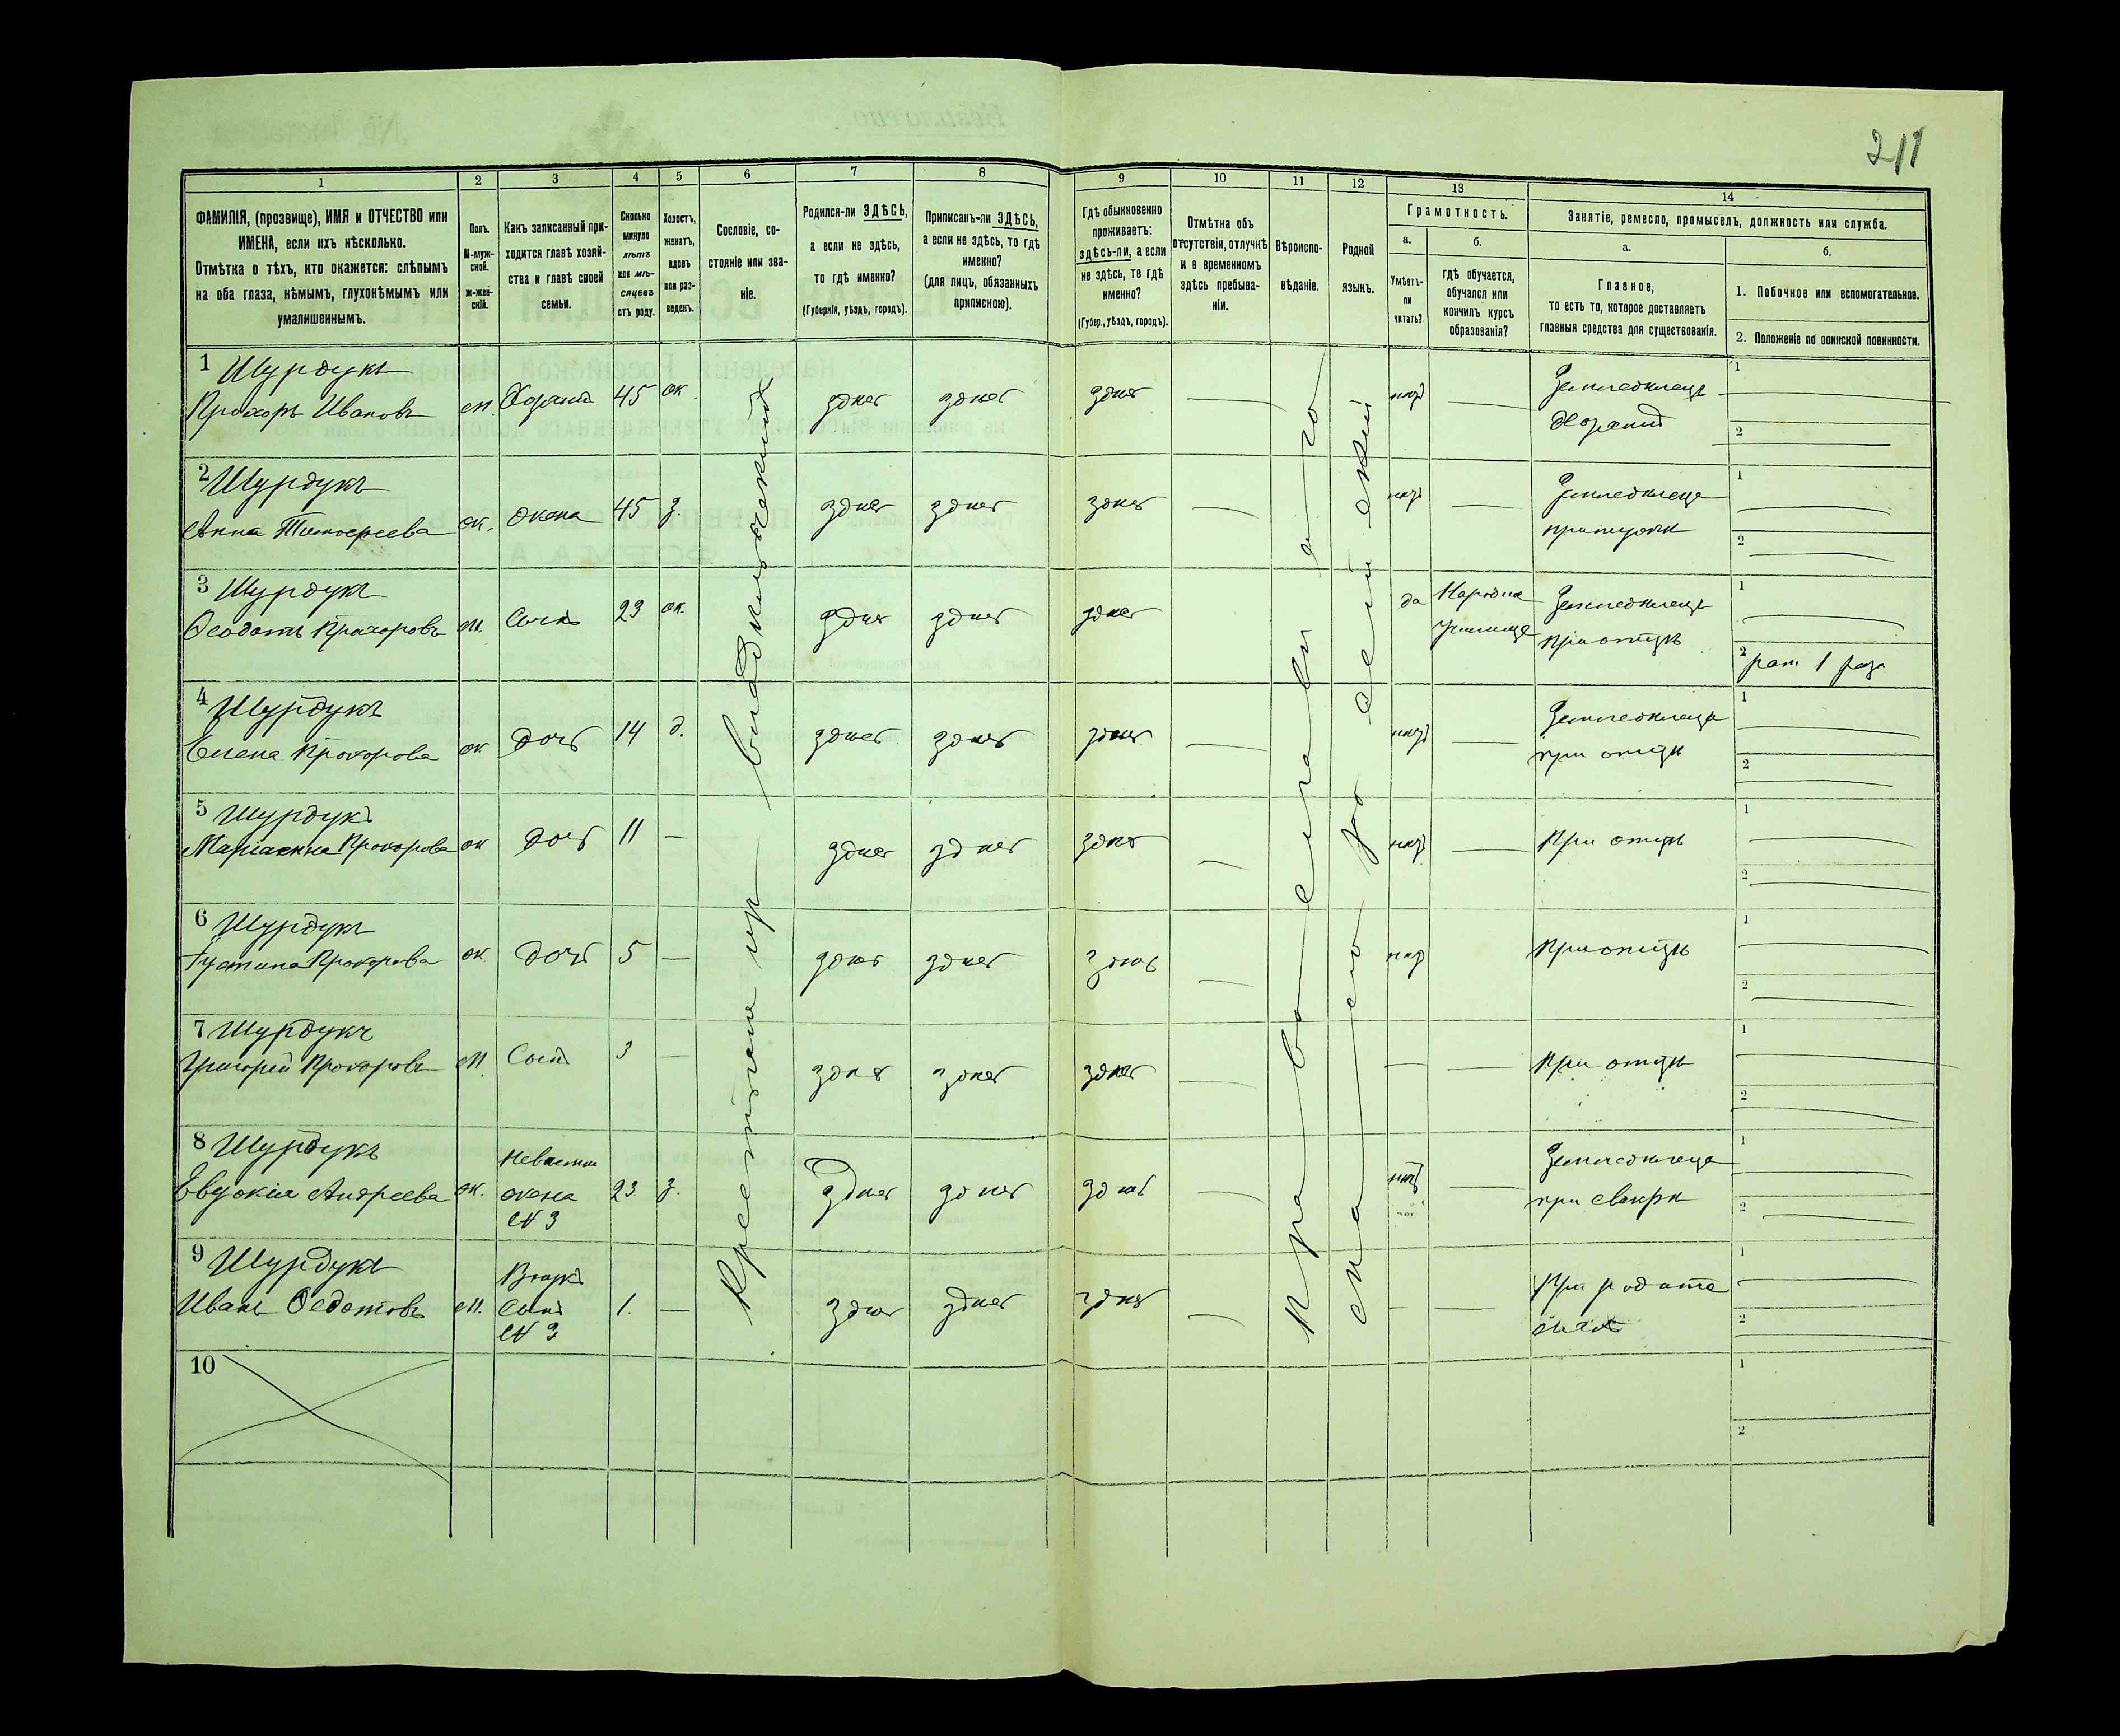 211
1 2 3 4 5 6 7 8 9 10 11 12 13 14
ФАМИЛІЯ, (прозвище), ИМЯ и ОТЧЕСТВО или
ИМЕНА, если ихъ нѣсколько.
Отмѣтка о тѣхъ, кто окажется: слѣпымъ
на оба глаза, нѣмымъ, глухонѣмымъ или
умалишеннымъ.
Полъ.
М-муж-
ской.
Ж-жен-
скій.
Какъ записанный при-
ходится главѣ хозяй-
ства и главѣ своей
семьи.
Сколько
минуло
лѣтъ
или мѣ-
сяцевъ
отъ роду.
Холостъ,
женатъ,
вдовъ
или раз-
веденъ.
Сословіе, со-
стояніе или зва-
ніе.
Родился-ли ЗДѢСЬ,
а если не здѣсь,
то гдѣ именно?
(Губернія, уѣздъ, городъ).
Приписанъ-ли ЗДѢСЬ,
а если не здѣсь, то гдѣ
именно?
(для лицъ, обязанныхъ
припискою).
Гдѣ обыкновенно
проживаетъ:
здѣсь-ли, а если
не здѣсь, то гдѣ
именно?
(Губер., уѣздъ, городъ).
Отмѣтка объ
отсутствіи, отлучкѣ
и о временномъ
здѣсь пребыва-
ніи.
Вѣроиспо-
вѣданіе.
Родной
языкъ.
Грамотность.
а.
Умѣетъ-
ли
читать?
б.
гдѣ обучается,
обучался или
кончилъ курсъ
образованія?
Занятіе, ремесло, промыселъ, должность или служба.
а.
Главное,
то есть то, которое доставляетъ
главныя средства для существованія.
б.
1. Побочное или вспомогательное.
2. Положеніе по воинской повинности.
1 Шурдукъ
Прохоръ Ивановъ м. Хозяинъ 45 ж. здѣсь здѣсь здѣсь нѣтъ Земледѣлецъ
Хозяинъ
2 Шурдукъ
Анна Тимофеева ж. жена 45 з. здѣсь здѣсь здѣсь нѣтъ
при мужѣ
3 Шурдукъ
Ѳеодотъ Прохоровъ м. Сынъ 23 ж. здѣсь здѣсь здѣсь да Народное Земледѣлецъ
училище при отцѣ
1 раз.
4 Шурдукъ
Елена Прохорова ж дочь 14 д. здѣсь здѣсь здѣсь нѣтъ
при отцѣ
5 Шурдукъ
Маріанна Прохорова ж дочь 11 — здѣсь здѣсь здѣсь нѣтъ При отцѣ
6 Шурдукъ
Іустина Прохорова ж. дочь 5 — здѣсь здѣсь здѣсь нѣтъ При отцѣ
7 Шурдукъ
Григорій Прохоровъ м. Сынъ 3 — здѣсь здѣсь здѣсь При отцѣ
8 Шурдукъ
Евдокія Андреева ж. Невѣстка
жена
№ 3 23 з. здѣсь здѣсь здѣсь нѣтъ
при свекрѣ
9 Шурдукъ
Иванъ Ѳедотовъ м. Внукъ
сынъ
№ 3 1. — здѣсь здѣсь здѣсь При родите
ляхъ
10
Крестьянинъ владѣльческій
Православнаго